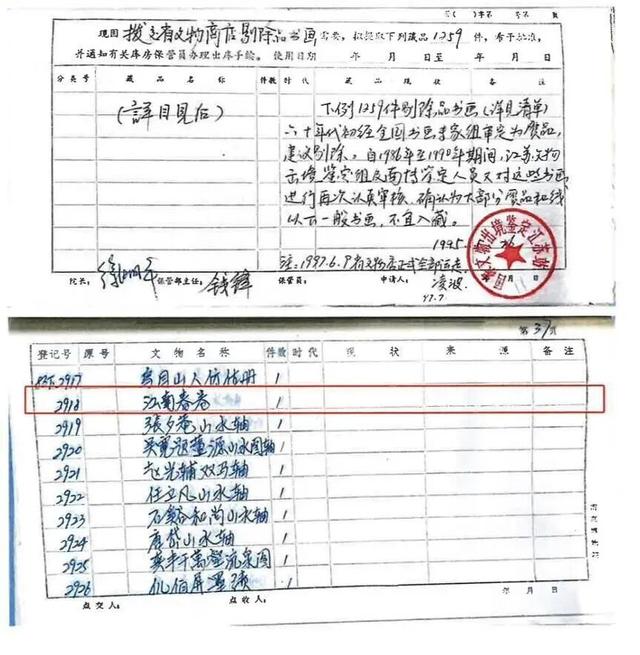 字第 号
现因 拨交省文物商店剔除品书画 需要，拟提取下列藏品 1259 件，希予批准，
并通知有关库房保管员办理出库手续。 使用日期 年 月 日至 年 月 日
分类号 藏品名称 件数 时代 藏品现状 备注
(詳目見后)
下列1259件剔除品书画(详见清单)
六十年代初经全国书画专家组审定为赝品，
建议剔除。自1986年至1990年期间，江苏文物
出境鉴定组及南博鉴定人员又对这些书画
进行再次认真审核，确认为大部分赝品和线
以下一般书画，不宜入藏。
1995.
注：1997.6. 省文物店正式全部
院长： 徐湖平 保管部主任： 钱锋 保管员： 申请人： 凌波 年 月 日
97.7.
国家文物出境鉴定江苏站
第37页
登记号 原号 文物名称 件数 时代 现状 来源 备注
2917 山人仿 册 1
2918 江南春卷 1
2919 張夕庵山水轴 1
2920 吴寬题董源山水图轴 1
2921 赵光辅双马轴 1
2922 任立凡山水轴 1
2923 石谿和尚山水轴 1
2924 唐岱山水轴 1
2925 奚丰千萬壑流泉图 1
2926 仇伯屏 1
点交人： 点收人： 年 月 日